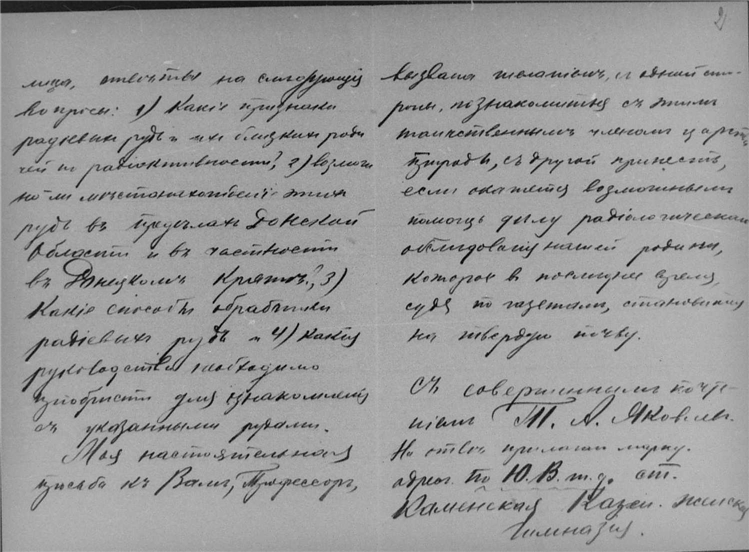 2
лица, отвѣтить на слѣдующія
вопросы: 1) Какіе признаки
радіевыхъ рудъ и ихъ близкихъ
по радіоактивности? 2) возмож
но ли мѣстонахожденіе этихъ
рудъ въ предѣлахъ Донской
Области и въ частности
въ Донецкомъ Кряжѣ?, 3)
Какіе способы обработки
радіевыхъ рудъ и 4) какія
руководства необходимо
пріобрѣсти для ознакомленія
съ указанными рудами.
Моя настоятельная
просьба къ Вамъ, Профессоръ,
вызвана желаніемъ, съ одной сто-
роны, познакомиться съ этимъ
таинственнымъ членомъ царства
природы, съ другой принесть,
если окажется возможнымъ
помощь дѣлу радіологическаго
обслѣдованія нашей родины,
которое въ послѣднее время,
судя по газетамъ, становится
на твердую почву.
Съ совершеннымъ почте-
ніемъ Т. А. Яковлев.
На отвѣтъ прилагаю марку.
адрес. по Ю. В. ж. д. ст.
Каменская Казен. женская
гимназія.